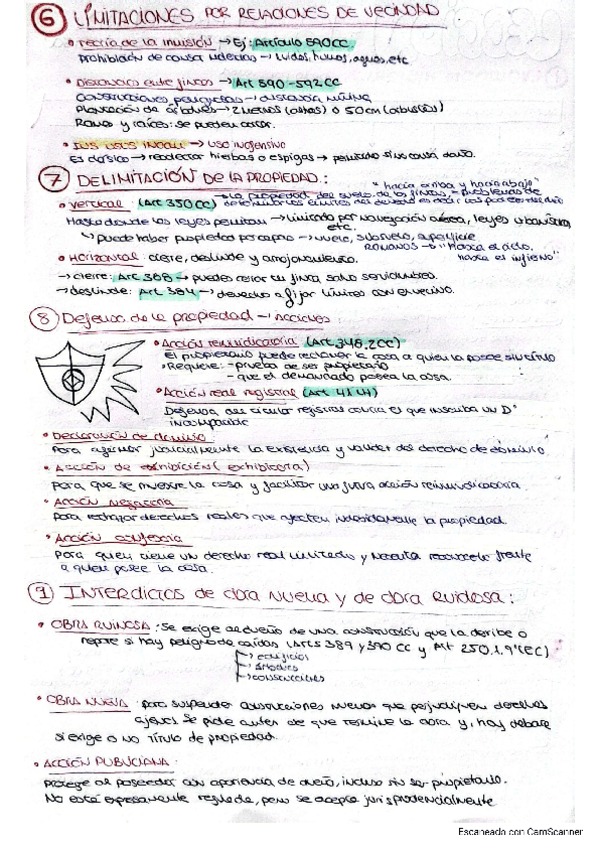 6 LIMITACIONES POR RELACIONES DE VECINDAD
• Teoría de la inmisión → Ej: Artículo 590CC.
Prohibición de causar molestias → ruidos, humos, aguas, etc
• Distancias entre fincas → Art 590-592CC
Construcciones peligrosas → distancia mínima
Plantación de árboles → 2 metros (altos) ó 50cm (arbustos)
Ramas y raíces: se pueden cortar.
• IUS USUS INOCUI → Uso inofensivo
Es clásico → recolectar hierbas o espigas → permitido si no causa daño.
7 DELIMITACIÓN DE LA PROPIEDAD: "hacia arriba y hacia abajo"
• Vertical: (Art 350CC) → La propiedad del suelo de las fincas → problemas de
Hasta donde las leyes permitan → Limitando por navegación aérea, leyes urbanística,
etc.
↳ puede haber propiedad por capas → vuelo, subsuelo, superficie
ROMANOS → "Hasta el cielo,
hasta el infierno"
• Horizontal: cierre, deslinde y amojonamiento.
→ cierre: Art 388 → puedes cerrar tu finca, salvo servidumbres.
→ deslinde: Art 384 → derecho a fijar límites con el vecino.
8 Defensa de la propiedad → Acciones:
• Acción reivindicatoria (Art 348.2CC)
El propietario puede reclamar la cosa a quien la posee sin título
• Requiere: - prueba de ser propietario
- que el demandado posea la cosa.
• Acción real registral (Art. 41 LH)
Defensa del titular registral contra el que inscriba un D°
incompatible
• Declaración de dominio:
Para afirmar judicialmente la existencia y validez del derecho de dominio.
• Acción de exhibición (exhibitoria)
Para que se muestre la cosa y facilitar una futura acción reivindicatoria.
• Acción negatoria
Para rechazar derechos reales que afecten indebidamente la propiedad.
• Acción confesoria
Para quien tiene un derecho real limitado y necesita reconocerlo frente
a quien posee la cosa.
9 INTERDICTOS de obra nueva y de obra ruidosa:
• OBRA RUINOSA: Se exige al dueño de una construcción que la derribe o
repare si hay peligro de caídas (Arts 389 y 390 CC y Art 250.1.9º LEC)
→ edificios
→ árboles
→ construcciones
• OBRA NUEVA: para suspender construcciones nuevas que perjudiquen derechos
ajenos. Se pide antes de que termine la obra y, hay debate
si exige o no título de propiedad.
• ACCIÓN PUBLICIANA:
Protege al poseedor con apariencia de dueño, incluso sin ser propietario.
No está expresamente regulada, pero se acepta jurisprudencialmente
Escaneado con CamScanner